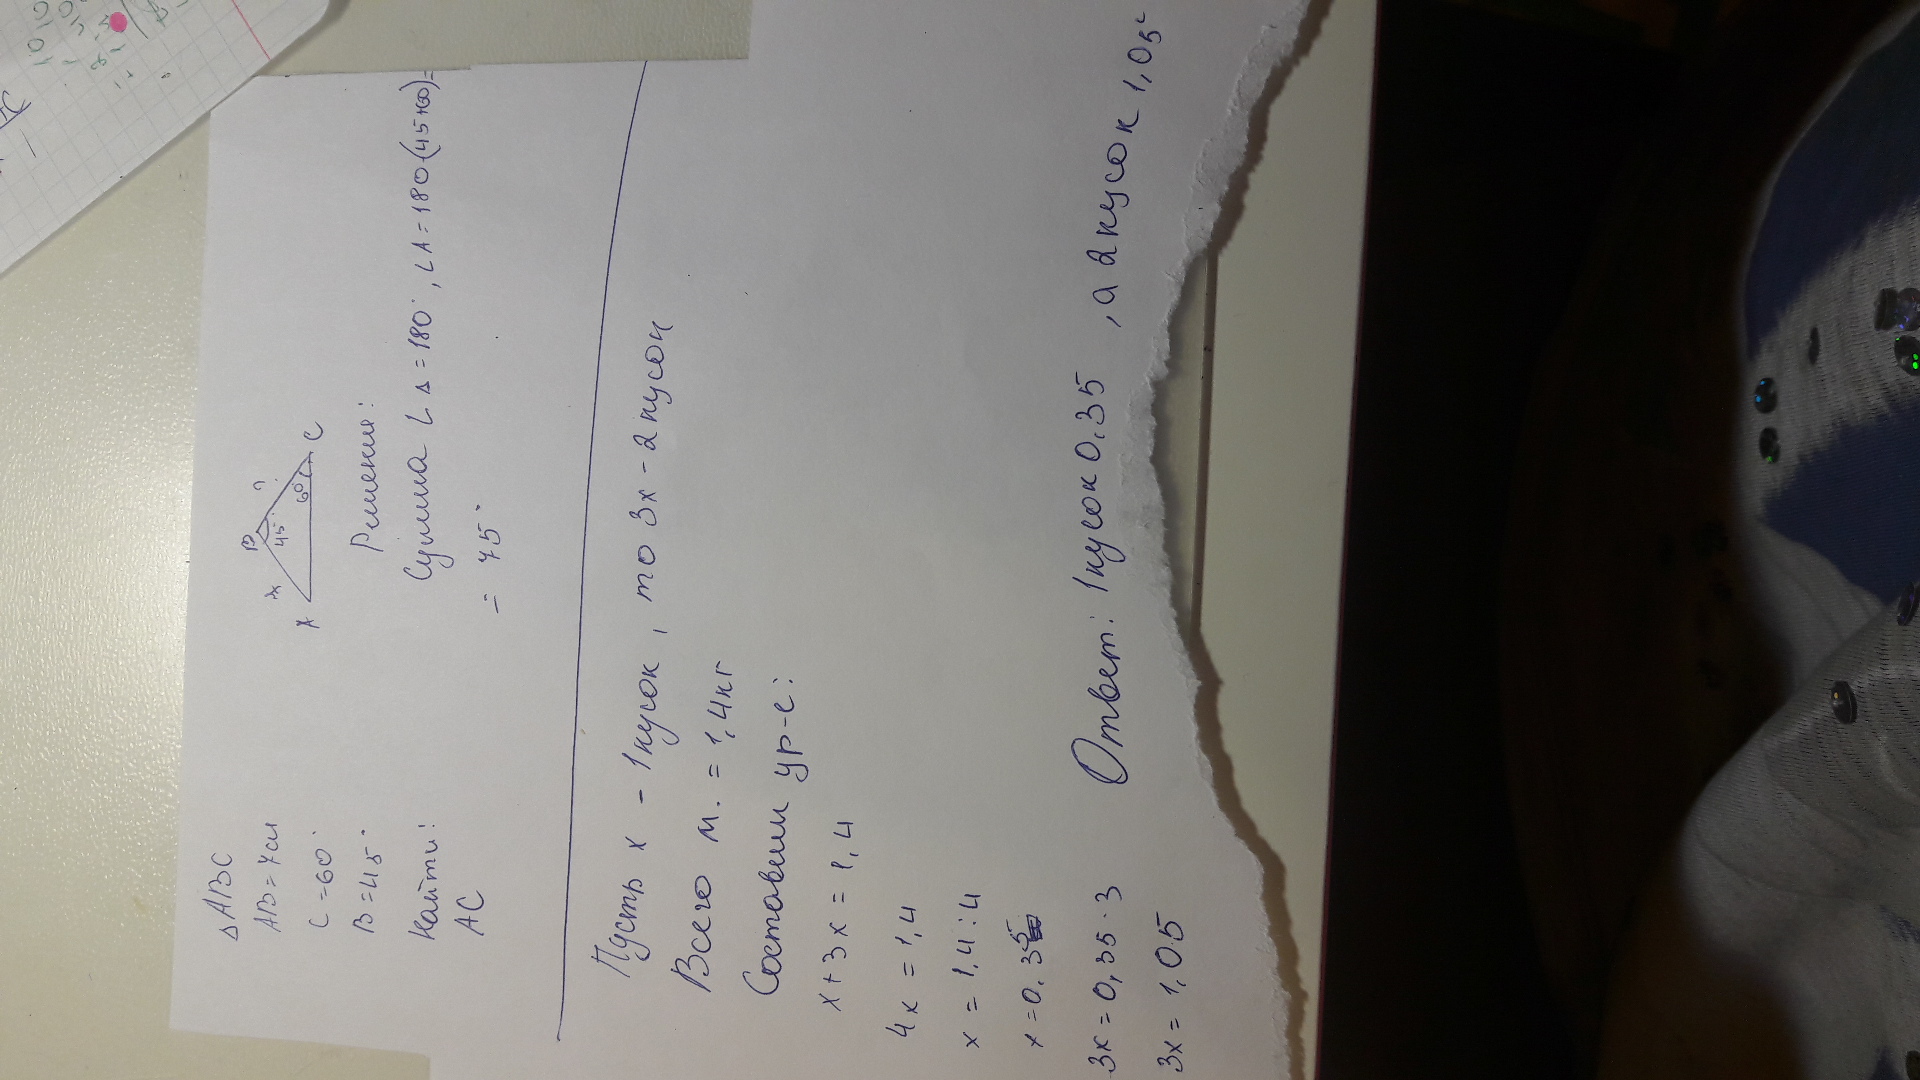 Δ ABC
AB = 7см
C = 60°
B = 45°
Найти:
AC
B
?
45°
60°
A
C
Решении:
Сумма ∠ Δ = 180°, ∠A = 180°(45+60)=
= 75°
Пусть x - 1кусок, то 3x - 2кусок
Всего м. = 1,4кг
Составим ур-е:
x + 3x = 1,4
4x = 1,4
x = 1,4 : 4
x = 0,35
3x = 0,35 · 3
3x = 1,05
Ответ: 1кусок 0,35, а 2кусок 1,05